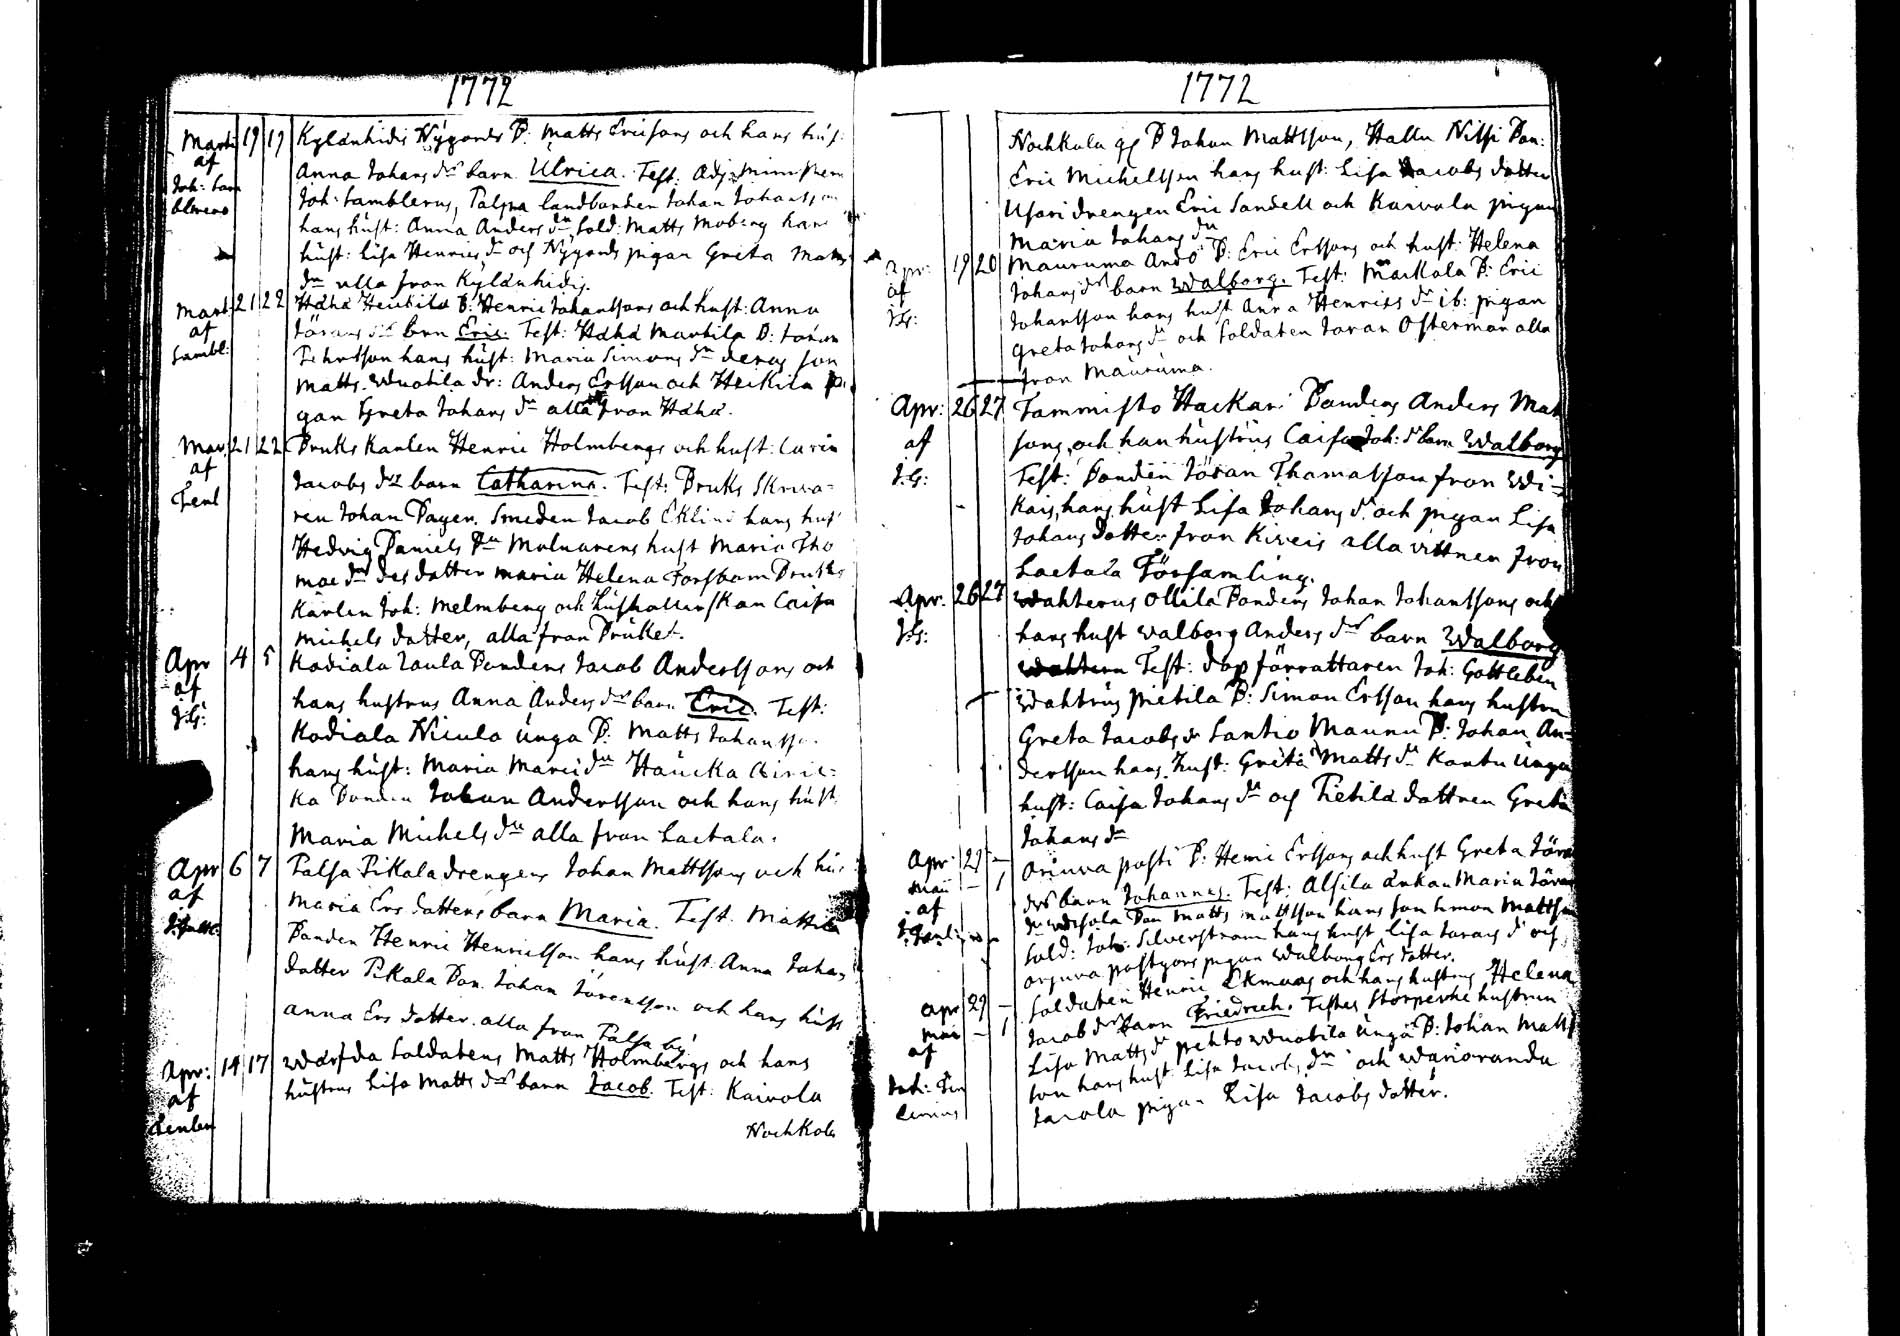 1772
Marti 19 19 Kylänhidis Nygords B: Matts Ericsons och hans hust:
af Anna Johans dr barn Ulrica. Test: Adj: ministerii
Joh: Sam Joh: Samblerus, Palpa landbonden Johan Johansson
blerus hans hust: Anna Anders dr Sold: Matts Moberg hans
hust: Lisa Henrics dr och Nygords pigan Greta Matts
dr alla fron Kylänhidis.
Mart: 21 22 Hähä Heikilä B: Henric Johanssons och hust: Anna
af Jörans dr barn Eric. Test: Hähä Markila B:
Sambl: hans hust: Maria Simons dr deras son
Matts dr: Anders Ersson och Heikilä pi
gan Greta Johans dr alla fron Hähä.
Mar 21 22 Bruks Karlen Henric Holmbergs och hust: Carin
af Jacobs drs barn Catharina. Test: Bruks Skriva=
Tenl ren Johan Payen. Smeden Jacob Eklind hans hust
Hedvig Daniels dr Molnarens hust Maria Tho
mae dr des dotter Maria Helena Forsbom Bruks
Karlen Joh: Melmberg och hushollerskan Caisa
Michels dotter, alla fron Bruket.
Apr 4 5 Kodiala Jaula Bondens Jacob Anderssons och
af hans hustrus Anna Anders dr barn Eric. Test:
J:G: Kodiala Nicula unga B: Matts Johansson
hans hust: Maria Marci dr Haucka
ka Bonden Johan Andersson och hans hust
Maria Michels dr alla fron Laetala.
Apr 6 7 Palsa Pikala drengens Johan Mattssons och hus
af Maria Ers dotters barn Maria. Test. Mattila
Bonden Henric Henricsson hans hust: Anna Johans
dotter Pikala Bon. Johan Jörensson och hans hust
Anna Ers dotter. alla fron Palsa by
Apr: 14 17 Soldatens Matts Holmbergs och hans
af hustrus Lisa Matts drs barn Jacob. Test: Kaivola
Nochkola
1772
Nochkala gl B Johan Mattsson, Hallu Nissi Bon:
Eric Michelsson hans hust: Lisa Jacobs dotter
Usari drengen Eric Sandell och Kaivola pigan
Maria Johans dr
Apr: 19 20 Mauruma Ando B: Eric Erssons och hust: Helena
af Johans drs barn Walborg. Test: Markola B: Eric
J:G: Johansson hans hust Anna Henrics dr ib: pigan
Greta Johans dr och Soldaten Joran Osterman alla
fron Mauruma.
Apr: 26 27 Tammisto Hackari Bondens Anders Mat
af sons, och han hustrus Caisa Joh: dr barn Walborg
J:G: Test: Bonden Jöran Thomasson fron Wi=
kais, hans hust Lisa Johans dr och pigan Lisa
Johans Dotter fron Kiveis alla vittnen fron
Laetala Församling.
Apr. 26 27 Wahterus Ollila Bondens Johan Johanssons och
J:G: hans hust Walborg Anders drs barn Walborg
Test: dop förrattaren Joh: Gottleben
Wahtrus Pietila B: Simon Ersson hans hustru
Greta Jacobs dr Santio Maunu B: Johan An=
dersson hans hust: Greta Matts dr Kantu unga
hust: Caisa Johans dr och Pietilä dottren Greta
Johans dr
Apr: 29 – Posti B: Henric Erssons och hust Greta Jöra
Mai – 1 drs barn Johannes. Test: Alsila änkan Maria Jöra
af dr Bon Matts Mattsson hans son Simon Mattsson
Sold: Joh: Silverstrom hans hust Lisa Jorans dr och
postgors pigan Walborg Ers dotter.
Apr 29 – Soldaten Henric Ekmans och hans hustrus Helena
Mai – 1 Jacob drs barn Friedrich. Testes Storpertti hustrun
af Lisa Matts dr unga B: Johan Matts
son hans hust Lisa Jacobs dr och Warioranda
Jacola pigan Lisa Jacobs dotter.